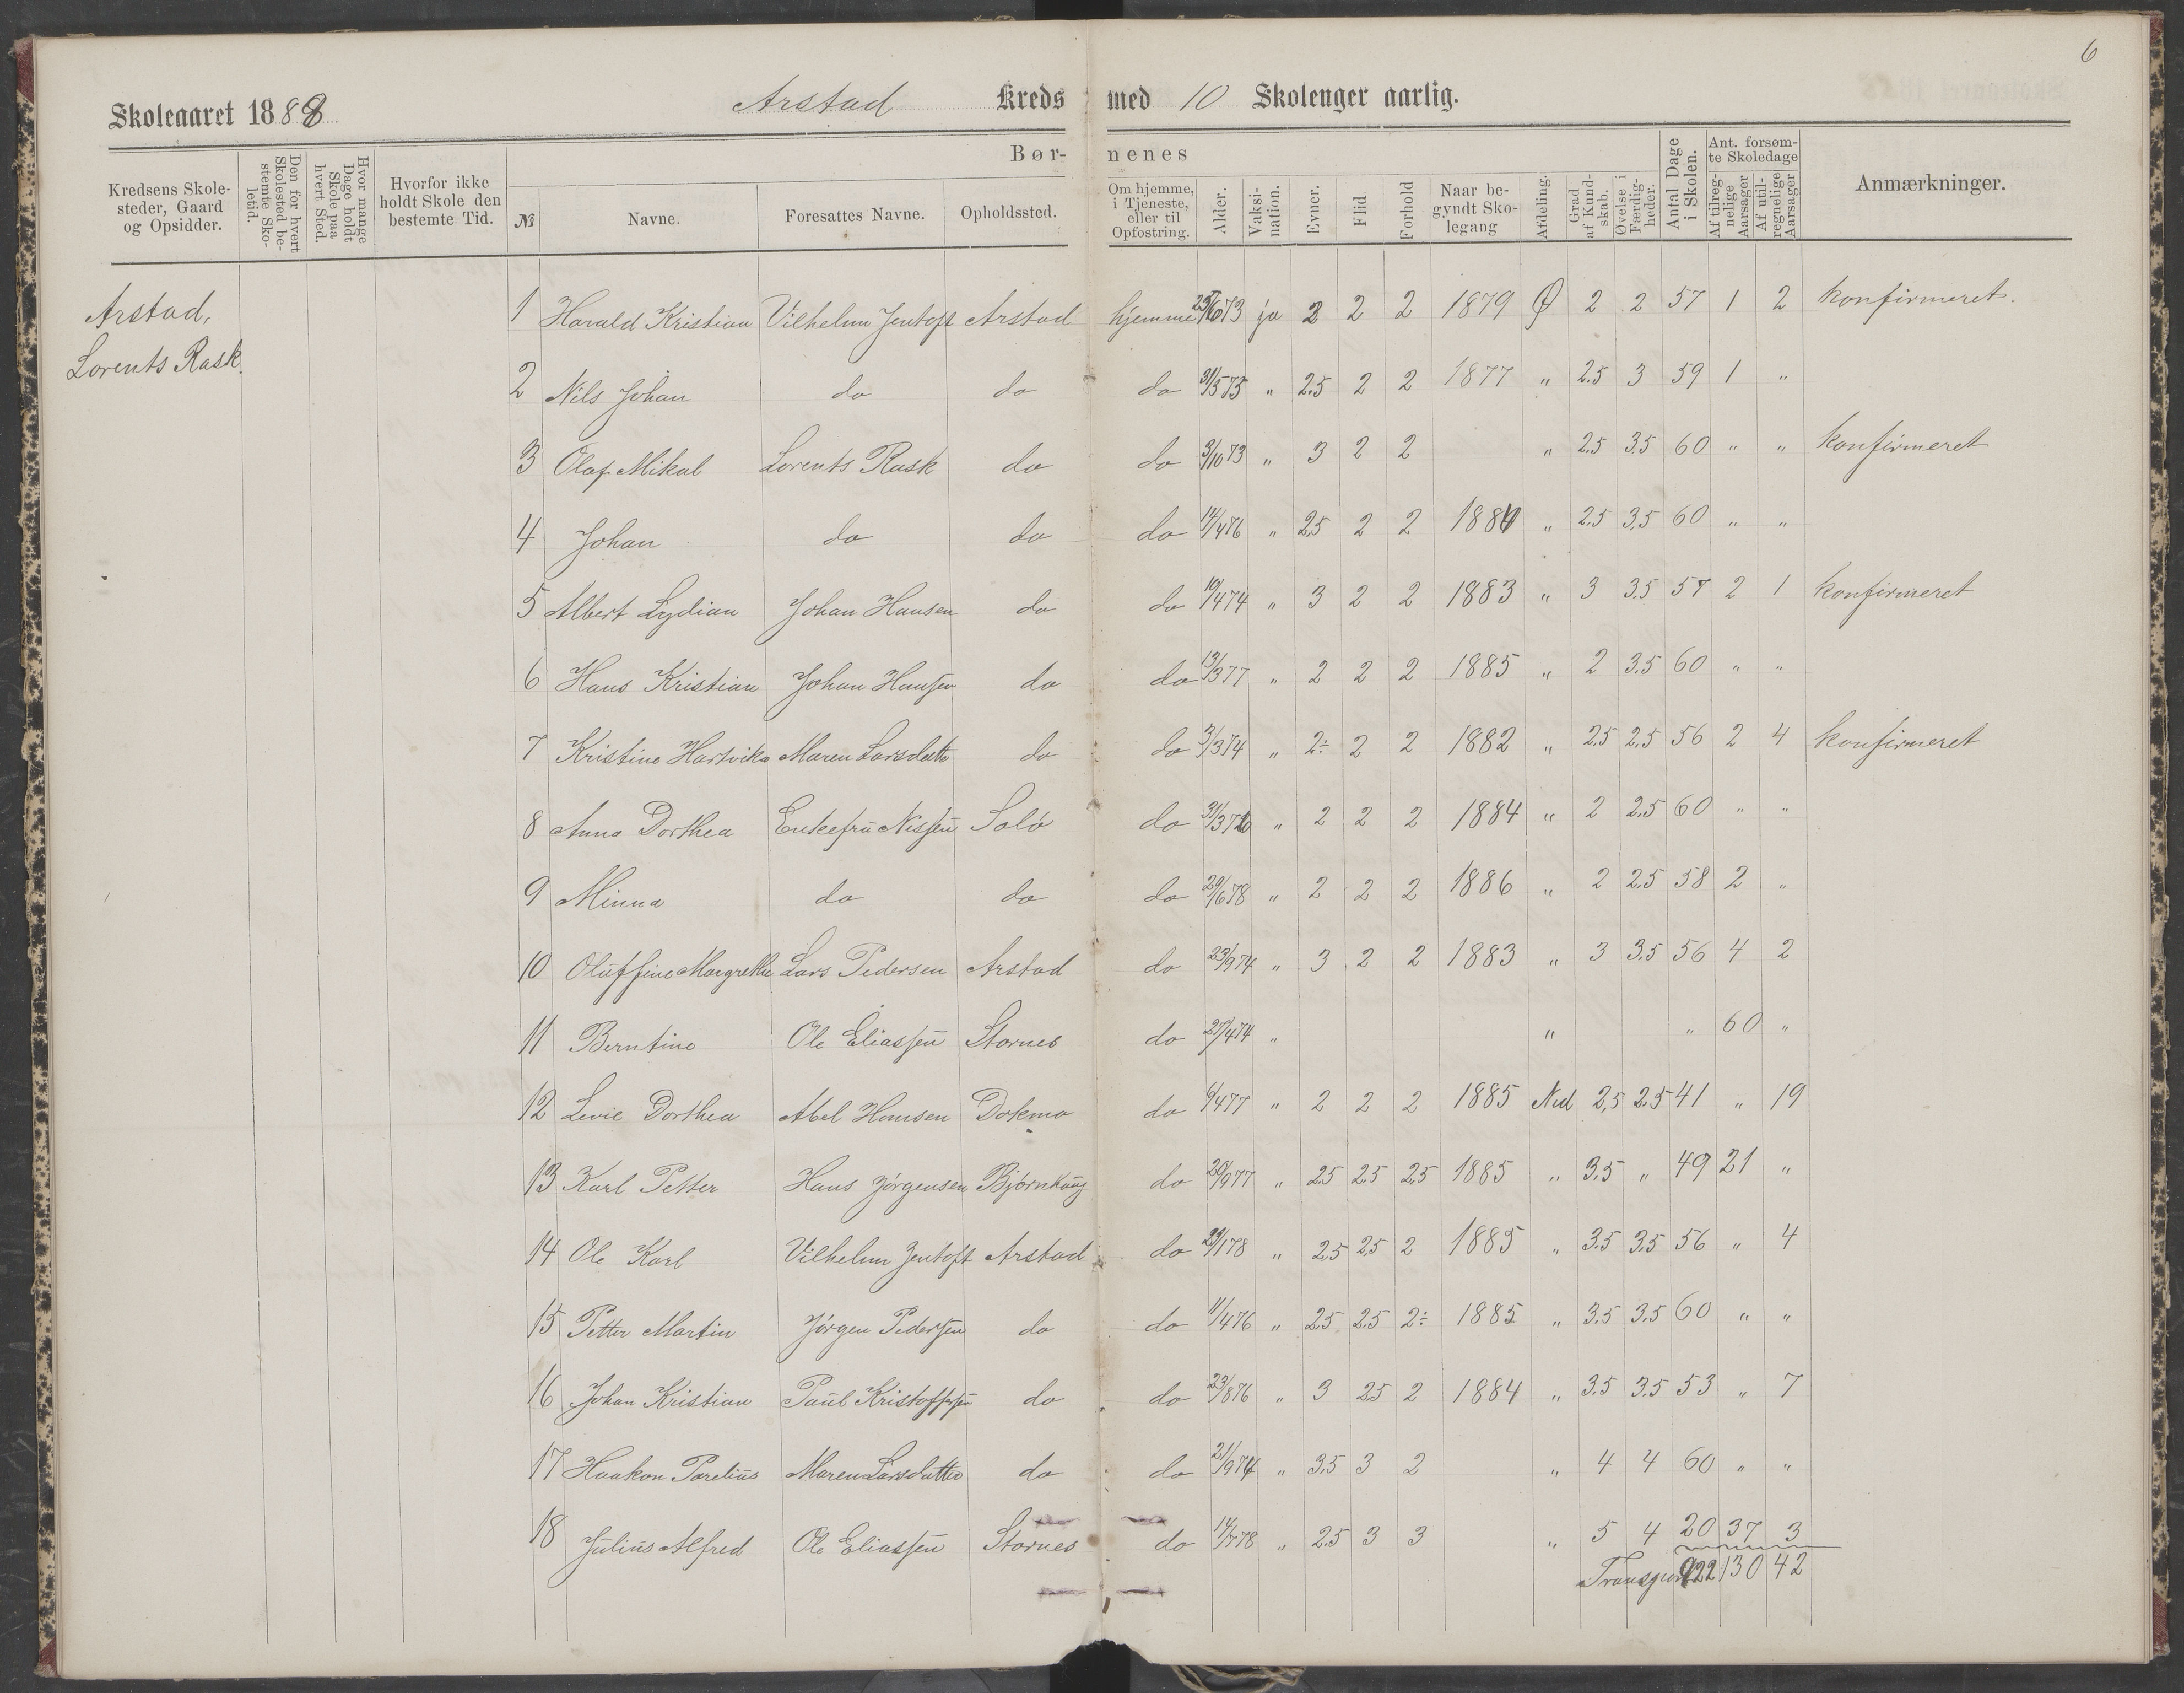 6
Skoleaaret 1888 Arstad Kreds med 10 Skoleuger aarlig.
Kredsens Skolesteder, Gaard og Opsidder.
Den for hvert Skolested bestemte Skoletid.
Hvor mange Dage holdt Skole paa hvert Sted.
Hvorfor ikke holdt Skole den bestemte Tid.
Børnenes
№ Navne. Foresattes Navne. Opholdssted. Om hjemme, i Tjeneste, eller til Opfostring. Alder. Vaksination. Evner. Flid Forhold Naar begyndt Skolegang Afdeling. Grad af Kundskab. Øvelse i Færdigheder. Antal Dage i Skolen. Ant. forsømte Skoledage Af tilregnelige Aarsager Af utilregnelige Aarsager Anmærkninger.
Arstad,
Lorents Rask.
1 Harald Kristian Vilhelm Jentoft Arstad hjemme 29/6 73 ja 2 2 2 1879 Ø 2 2 57 1 2 konfirmeret.
2 Nils Johan do do do 31/5 75 " 2.5 2 2 1877 " 2.5 3 59 1 "
3 Olaf Mikal Lorents Rask do do 3/10 73 " 3 2 2 " 2.5 3.5 60 " " konfirmeret
4 Johan do do do 14/4 76 " 2.5 2 2 " 2.5 3.5 60 " "
5 Albert Lydian Johan Hansen do do 19/4 74 " 3 2 2 1883 " 3 3.5 57 2 1 konfirmeret
6 Hans Kristian Johan Hansen do do 13/3 77 " 2 2 2 1885 " 2 3.5 60 " "
7 Kristine Hartvika Maren Larsdatte do do 3/3 74 " 2÷ 2 2 1882 " 2.5 2.5 56 2 4 konfirmeret
8 Anna Dorthea Enkefru Nissen Salø do 31/3 76 " 2 2 2 1884 " 2 2.5 60 " "
9 Minna do do do 29/6 78 " 2 2 2 1886 " 2 2.5 58 2 "
10 Oluffine Margrethe Lars Pedersen Arstad do 23/9 74 " 3 2 2 1883 " 3 3.5 56 4 2
11 Berntine Ole Eliassen Stornes do 27/4 74 " " " 60 "
12 Levie Dorthea Abel Hansen Dokmo do 6/4 77 " 2 2 2 1885 Ned 2,5 2.5 41 " 19
13 Karl Petter Hans Jørgensen Bjørnhaug do 20/9 77 " 2.5 2.5 2,5 1885 " 3.5 " 49 21 "
14 Ole Karl Vilhelm Jentoft Arstad do 29/1 78 " 2.5 2.5 2 1885 " 3.5 3.5 56 " 4
15 Petter Martin Jørgen Pedersen do do 11/4 76 " 2.5 2.5 2÷ 1885 " 3.5 3.5 60 " "
16 Johan Kristian Paul Kristoffersen do do 23/8 76 " 3 2.5 2 1884 " 3.5 3.5 53 " 7
17 Haakon Parelius Maren Larsdatter do do 21/9 74 " 3.5 3 2 " 4 4 60 " "
18 Julius Alfred Ole Eliassen Stornes do 14/7 78 " 2.5 3 3 " 5 4 20 37 3
Transport 922 130 42